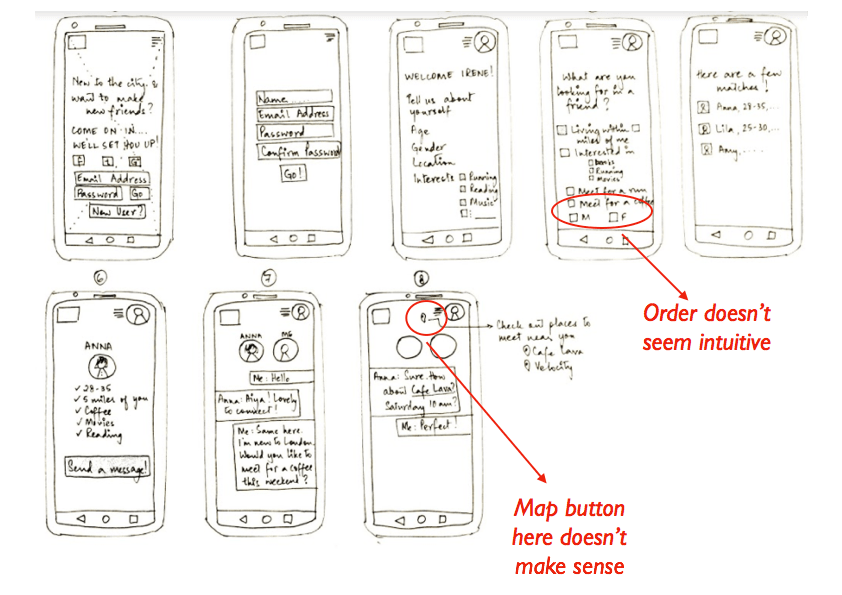 New to the city &
want to make
new friends?
COME ON IN...
WE'LL SET YOU UP!
f
t
G
Email Address
Password
Go
New User?
Name
Email Address
Password
Confirm Password
Go!
WELCOME IRENE!
Tell us about
yourself
Age
Gender
Location
Interests
Running
Reading
Music
What are you
looking for in a
friend?
Living within
miles of me
Interested in
books
Running
movies
Meet for a run
Meet for a coffee
M
F
Here are a few
matches!
Anna, 28-35,...
Lila, 25-30,...
Amy,....
Order doesn't
seem intuitive
6
ANNA
✓ 28-35
✓ 5 miles of you
✓ Coffee
✓ Movies
✓ Reading
Send a message!
7
ANNA
ME
Me: Hello
Anna: Aiya! Lovely
to connect!
Me: Same here.
I'm new to London.
Would you like to
meet for a coffee
this weekend?
8
Anna: Sure. How
about Cafe Lava?
Saturday 10 am?
Me: Perfect!
Check out places to
meet near you
Cafe Lava
Velocity
Map button
here doesn't
make sense